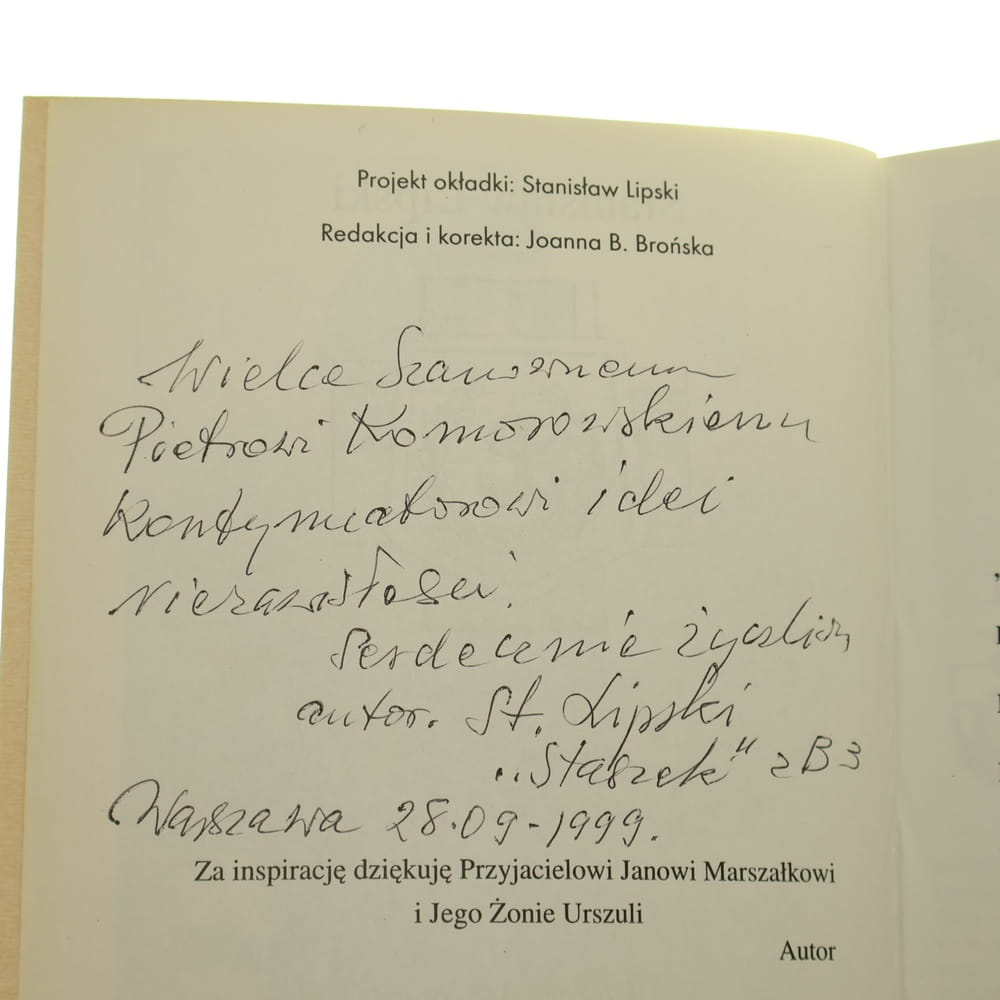 Projekt okładki: Stanisław Lipski
Redakcja i korekta: Joanna B. Brońska
Wielce Szanownemu
Piotrowi Komorowskiemu
Kontynuatorowi idei
niezawisłości.
Serdecznie życzliwy
autor. St. Lipski
„Staszek" z B3
Warszawa 28.09-1999.
Za inspirację dziękuję Przyjacielowi Janowi Marszałkowi
i Jego Żonie Urszuli
Autor